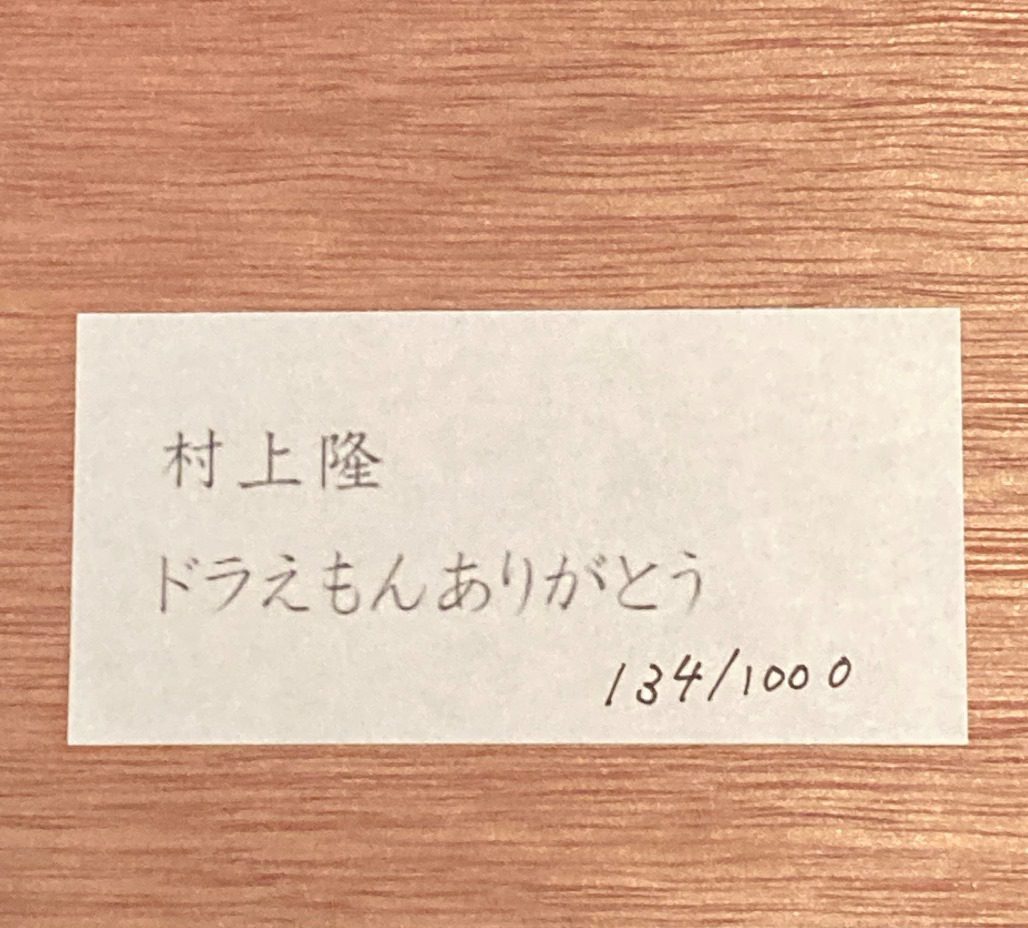 村上隆
ドラえもんありがとう
134/1000